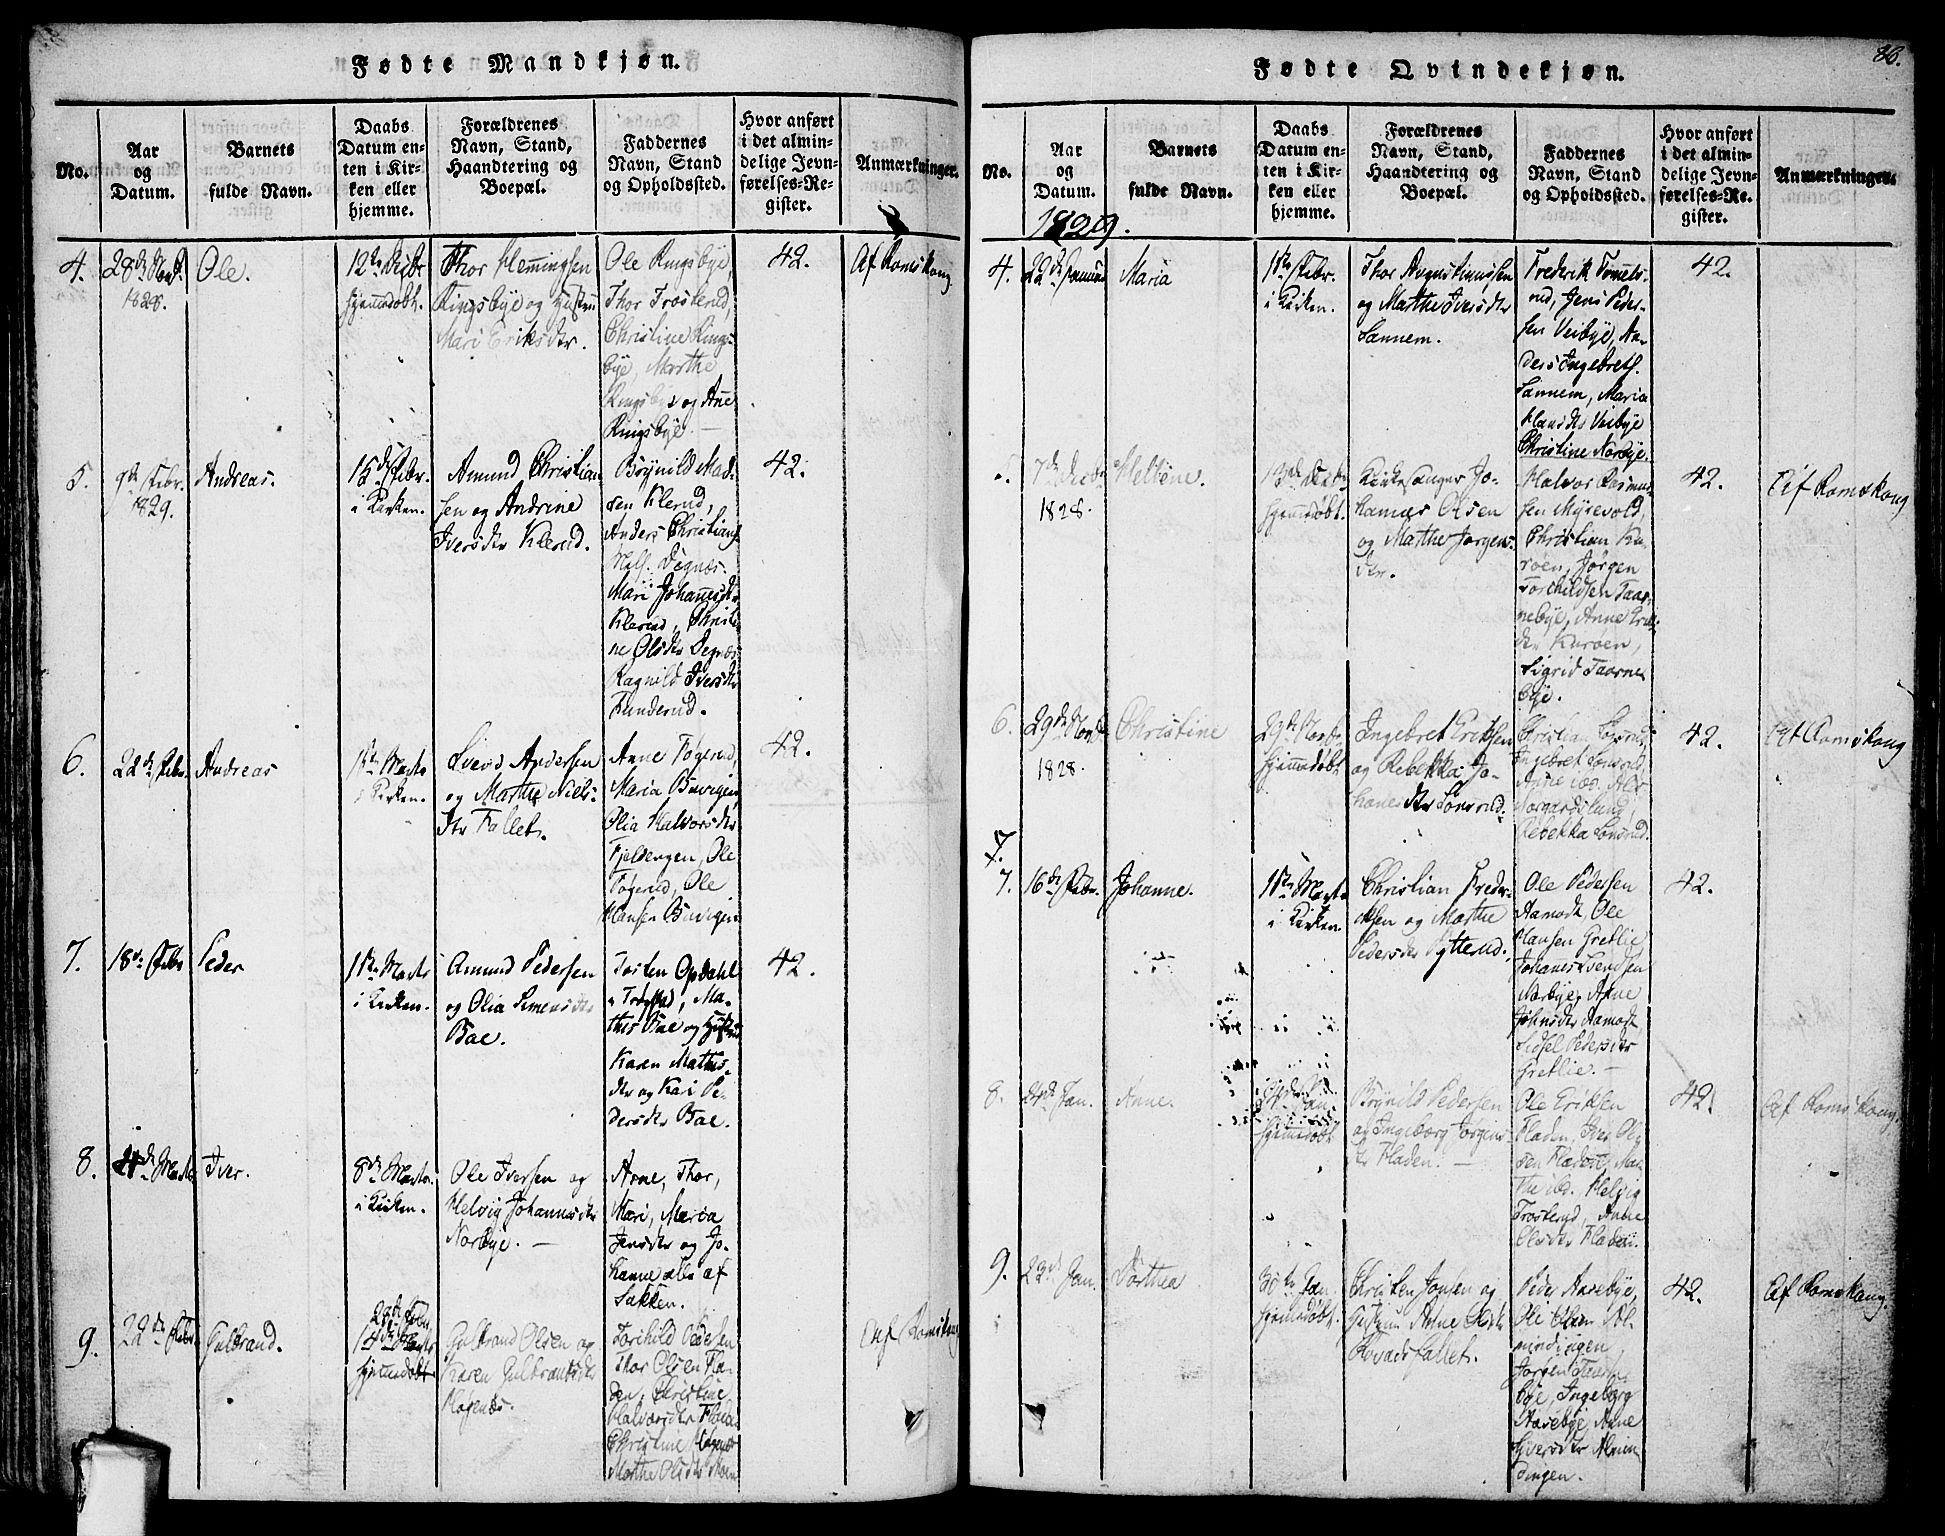 Fødte Mandkjøn.
No.
Aar
og
Datum.
Barnets
fulde Navn.
Daabs
Datum en-
ten i Kir-
ken eller
hjemme.
Forældrenes
Navn, Stand,
Haandtering og
Boepæl.
Faddernes
Navn, Stand
og Opholdssted.
Hvor anført
i det almin-
delige Jevn-
førelses-Re-
gister.
Anmærkninger.
4.
1828.
Ole.
12te Febr
hjemmedøbt.
Thor Hemmingsen
Ringsbye og Hustru
Mari Eriksdtr.
Ole Ringsbye,
Thor Trosterud,
Christine Rings-
bye, Marthe
Ringsbye og Ane
Ringsbye. —
42.
Af Romskoug
5.
9de Febr.
1829.
Andreas.
15de Febr.
i Kirken.
Amund Christian
sen og Andrine
Iversdtr Klerud.
Brynild Mad-
sen Klerud,
Anders Christians
Degnæs.
Mari Johannesdtr
Klerud, Christi-
ne Olsdtr Degnæs
Ragnild Iversdtr
Funderud.
42.
6.
22de Febr.
Andreas
1ste Marts
i Kirken.
Svend Andersen
og Marthe Niels-
dtr Fallet.
Anne Tøgerud,
Maria Buvigen,
Olia Halvorsdtr
Fjeldengen, Ole
Tøgerud, Ole
Hansen Buvigen
42.
7.
18de Febr
Peder
1ste Marts
i Kirken.
Amund Pedersen
og Olia Simensdtr
Bae.
Torsten Opdahl
i Trygstad, Ma-
this Bae og Hustru
Karen Mathis-
dtr og Kari Pe-
dersdtr Bae.
42.
8.
4de Marts
Iver.
8de Marts.
i Kirken.
Ole Iversen og
Helvig Johannesdtr
Norbye. —
Arne, Thor,
Mari, Maria
Jensdtr og Jo-
hanne alle af
Sakken.
9.
22de Febr
Gulbrand.
22de Febr.
14de Marts
hjemmedøbt
Gulbrand Olsen og
Karen Gulbrandsdtr
Høgenæs.
Torchild Pedersen
Thor Olsen Fla-
den, Christine
Halvorsdtr Fladen
Christine Høgenæs
Marthe Olsdtr Moen
Af Romskoug
Fødte Qvindekjøn.
86.
No.
Aar
og
Datum.
1829.
Barnets
fulde Navn.
Daabs
Datum en-
ten i Kir-
ken eller
hjemme.
Forældrenes
Navn, Stand,
Haandtering og
Boepæl.
Faddernes
Navn, Stand
og Opholdssted.
Hvor anført
i det almin-
delige Jevn-
førelses-Re-
gister.
Anmærkninger.
4.
22de Januar
Maria
1ste Febr.
i Kirken.
Thor Augustinussen
og Marthe Iversdtr
Sannem.
Frederik Tomels-
rud, Jens Peder-
sen Veibye, An-
ders Ingebrets.
Sannem, Maria
Hansdtr Veibye
Christine Norbye.
42.
5
7de Decbr
1828.
Meltene.
13de Decbr
hjemmedøbt.
Kirkesanger Jo-
hannes Olsen
og Marthe Jørgens-
dtr.
Halvor Rasmus-
sen Myrevold,
Christian Ku-
roen, Jørgen
Torchildsen Taar-
nebye, Anne Eriks-
dtr Kuroen,
Sigrid Taarne-
bye.
42.
Af Romskoug
6.
29de Novbr
1828.
Christine
29de Novbr
hjemmedøbt
Ingebret Eriksen
og Rebekka Jo-
hannesdtr Lonsrud.
Christian Lonsrud,
Ingebret Lonsrud,
Anne ibd.
Norgaardslund,
Rebekka Lonsrud.
42.
Af Romskoug
7.
7.
16de Febr.
Johanne.
1ste Marts
i Kirken.
Christian Freder-
iksen og Marthe
Pedersdtr Rytterud.
Ole Pedersen
Aamodt, Ole
Hansen Gretlie
Johannes Svendsen
Norbye, Anne
Johnsdtr Aamodt
Sidsel Pedersdtr
Gretlie. —
42.
8.
24de Jan.
Anne.
24de Jan
hjemmedøbt
Brynild Pedersen
og Ingeborg Jørgens-
dtr Fladen. —
Ole Eriksen
Fladen, Iver Ol-
sen Fladen, Mar-
the ibd. Helvig
Trosterud, Anne
Olsdtr Fladen.
42.
Af Romskoug.
9.
23de Jan.
Dorthea
30te Jan
hjemmedøbt
Christen Jonsen og
Hustrue Anne
Fallet.
Peder Aarebye,
Ole Olsen Al-
mindingen
Jørgen Taarne-
bye, Ingeborg
Aarebye, Anne
Iversdtr Almin-
dingen.
42.
Af Romskoug.